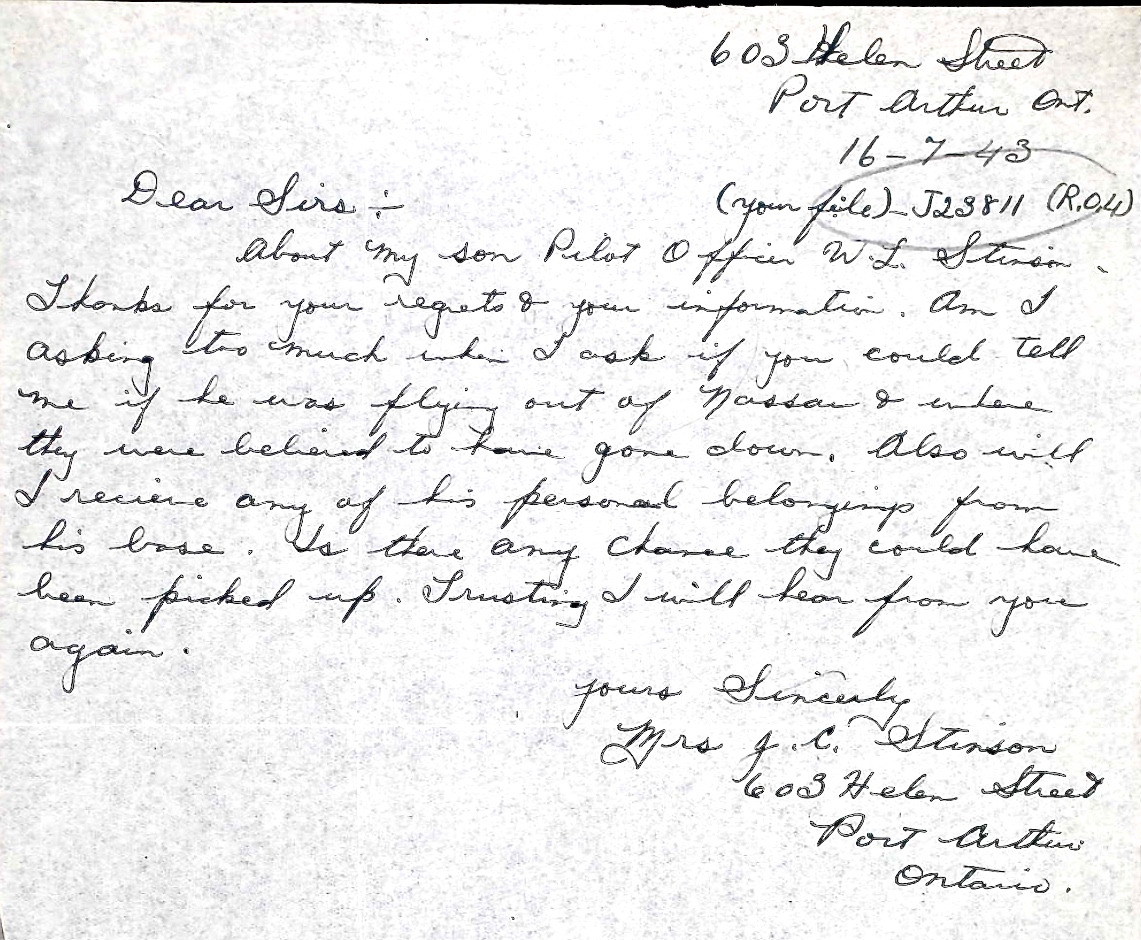 603 Helen Street
Port Arthur Ont.
16-7-43
(your file)-J23811 (R.O.4)
Dear Sirs :-
About my son Pilot Officer W.L. Stinson.
Thanks for your regrets & your information. Am I
asking too much when I ask if you could tell
me if he was flying out of Nassau & where
they were believed to have gone down. Also will
I recieve any of his personal belongings from
his base. Is there any chance they could have
been picked up. Trusting I will hear from you
again.
yours Sincerly
Mrs J.C. Stinson
603 Helen Street
Port Arthur
Ontario.